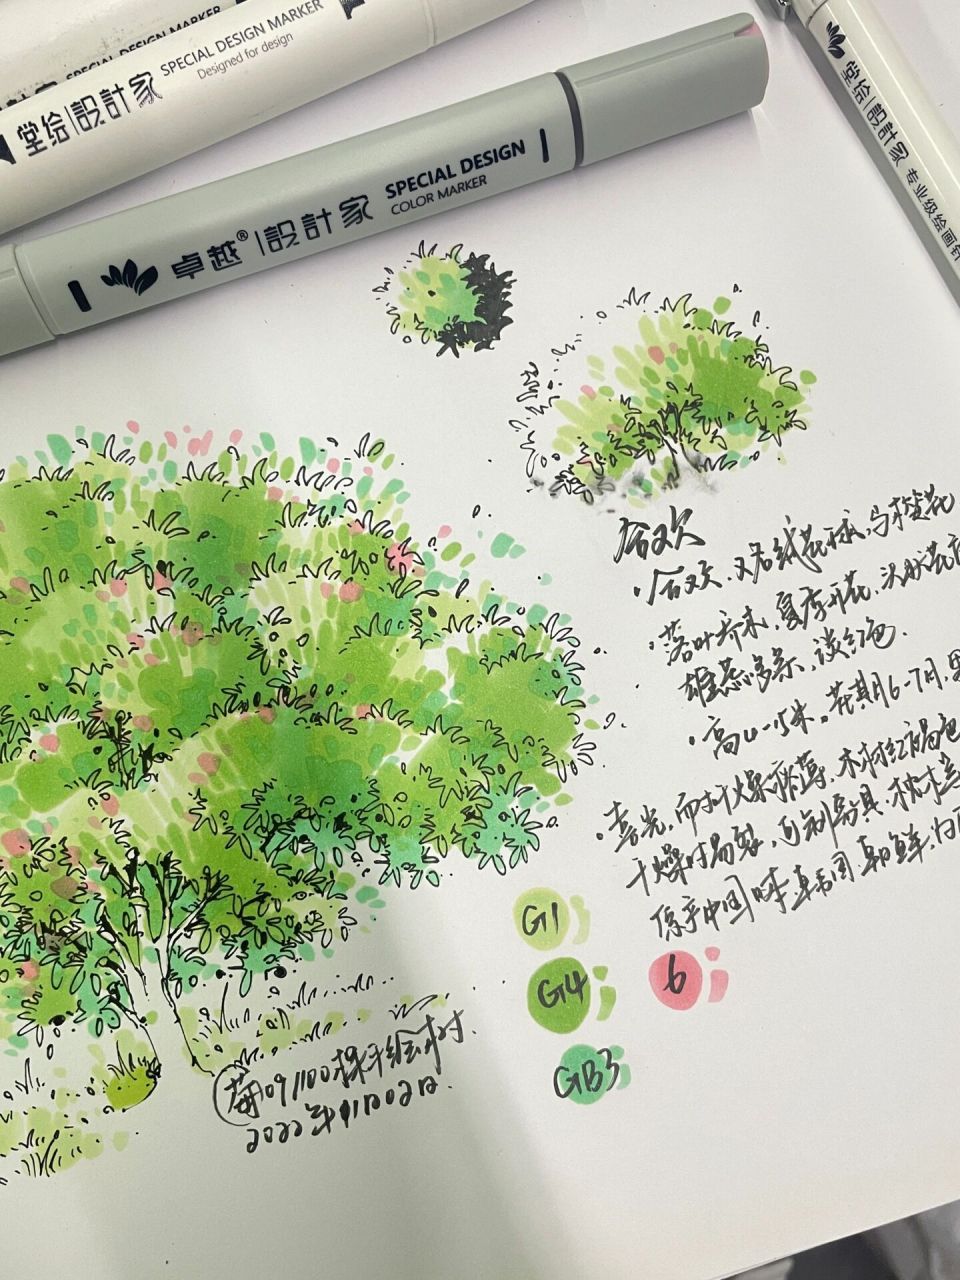 SPECIAL DESIGN MARKER
堂绘|設計家 SPECIAL DESIGN MARKER
Designed for design
卓越®|設計家 SPECIAL DESIGN
COLOR MARKER
堂绘|設計家 专业级绘画
合欢
·合欢,又名绒花树,马樱花
·落叶乔木,夏季开花,头状花
雄蕊多条,淡红色.
·高4-15米。花期6-7月,
·喜光,而耐干燥瘠薄,木材红褐色
干燥时易裂,可制家具、枕木
原产中国 日本 韩国 朝鲜,
G1
G4
6
GB3
09/100棵手绘树.
2022年11月02日.